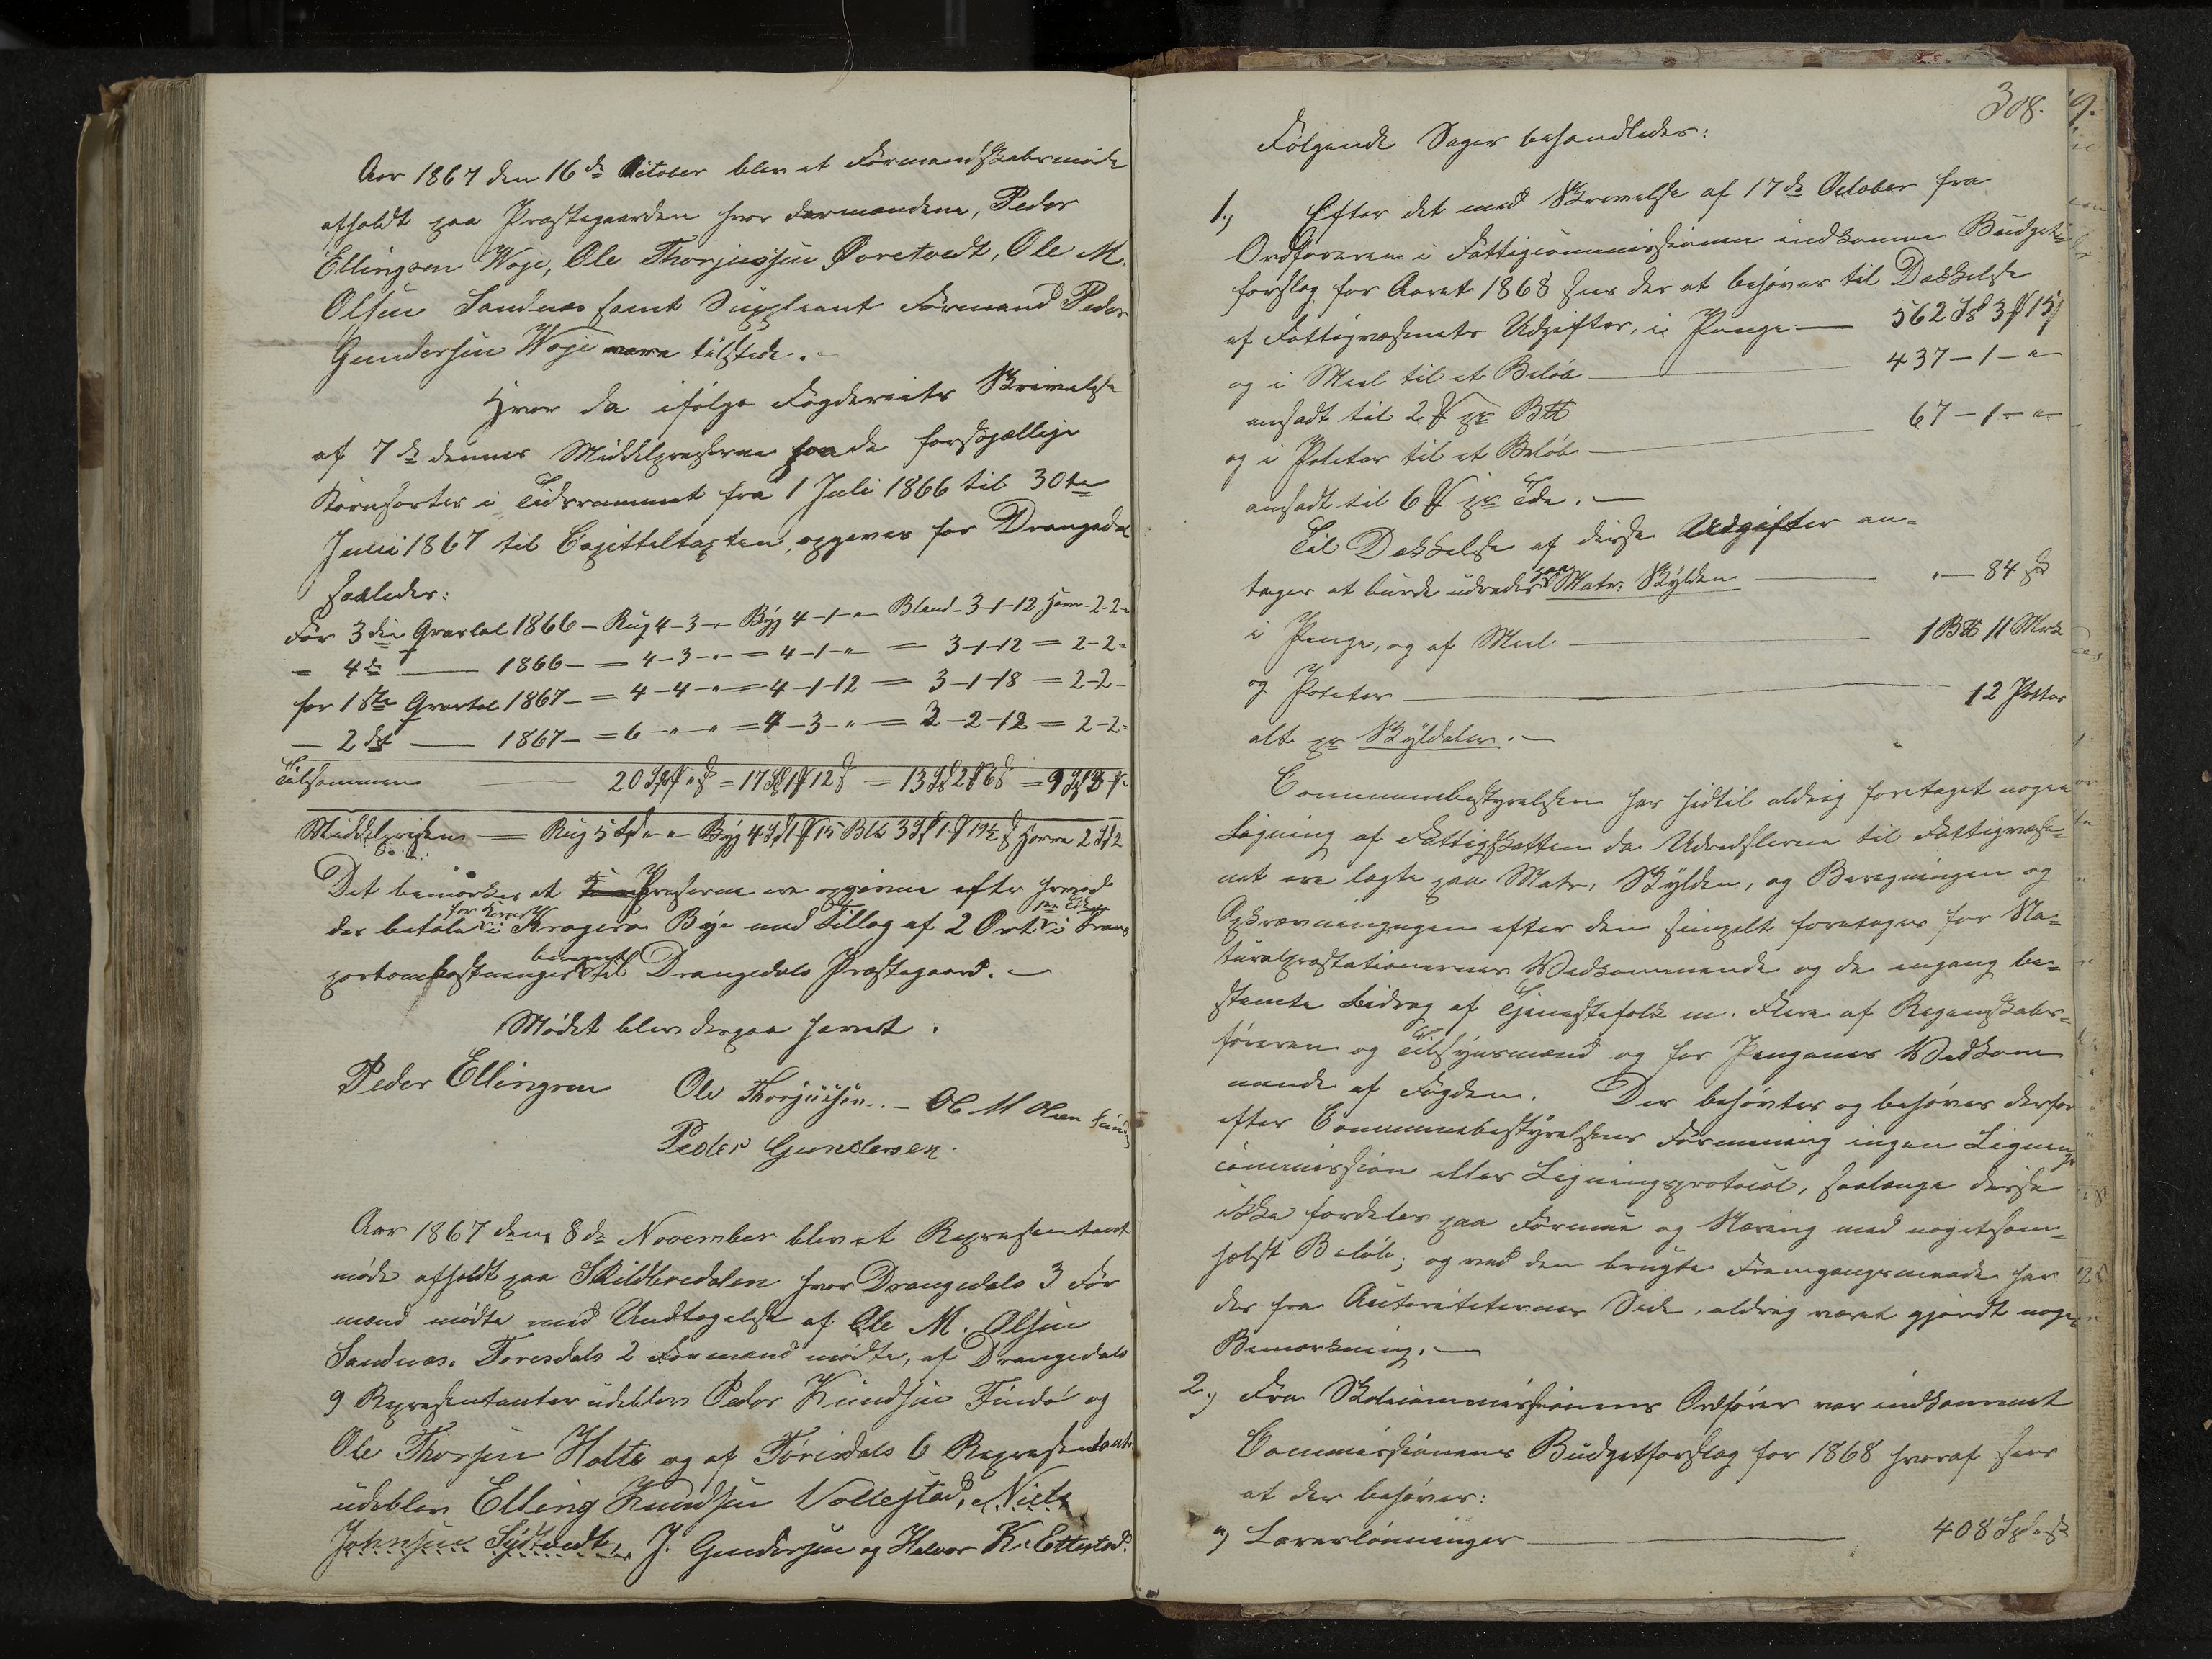 Aar 1867 den 16de October blev et Formandskabsmøde
afholdt paa Præstegaarden hvor Formændene, Peder
Ellingsen Woje, Ole Thorjussen Øvretvedt, Ole M.
Olsen Sandnæs samt Suppleant Formand Peder
Gundersen Woje vare tilstede.
Hvor da ifølge Fogderiets Skrivelse
af 7de dennes Middelpriserne paa de forskjællige
Kornsorter i Tidsrummet fra 1 Juli 1866 til 30te
Juni 1867 til Capitteltaxten, opgives for Drangedal
saaledes:
For 3die Qvartal 1866 – Rug 4-3-" Byg 4-1-" Bland-3-1-12 Havre 2-2-"
= 4de — 1866 – = 4-3-" = 4-1-" = 3-1-12 = 2-2-
for 1ste Qvartal 1867 – = 4-4-" = 4-1-12 = 3-1-18 = 2-2-
— 2det — 1867 – = 6-"-" = 4-3-" = 3-2-12 = 2-2-
Tilsammen
Middelprisen
Det bemærkes at Priserne ere opgivne efter hvad
der betales for Kornet i Kragerø Bye med Tillæg af 2 Ort pr Tønde i Trans
portomkostninger beregnet til Drangedals Præstegaard.
Mødet blev derpaa hævet.
Peder Ellingsen Ole Thorjussen. – Ole M Olsen Sandnæs
Peder Gundersen.
Aar 1867 den 8de November blev et Repræsentant
møde afholdt paa Skildbredalen hvor Drangedals 3 For
mænd mødte med Undtagelse af Ole M. Olsen
Sandnæs. Tørisdals 2 Formænd mødte, af Drangedals
9 Repræsentanter udeblev Peder Knudsen Findø og
Ole Thorsen Holte og af Tørisdals 6 Repræsentanter
udeblev Elling Knudsen Vollestad, Niels
Johnsen Sydtvedt, J. Gundersen og Halvor K. Ettestad.
308.
Følgende Sager behandledes:
1.) Efter det med Skrivelse af 17de October fra
Ordføreren i Fattigcommissionen indkomne Budget-
forslag for Aaret 1868 sees der at behøves til Dækkelse
af Fattigvæsenets Udgifter, i Penge — 562 Sp 3 ₰ 15
og i Meel til et Beløb — 437 – 1 – "
ansadt til 2 ₰ pr B℔
og i Poteter til et Beløb — 67 – 1 – "
ansadt til 6 ₰ pr Tde. —
Til Dækkelse af disse Udgifter an=
tages at burde udredes paa Matr: Skylden — " — 84 sk
i Penge, og af Meel — 1 B℔ 11 Mrk
og Poteter — 12 Potter
alt pr Skyldaler. —
Communebestyrelsen har hidtil aldrig foretaget nogen
Ligning af Fattigskatten da Udredslerne til Fattigvæse=
net ere lagte paa Matr. Skylden, og Beregningen og
Opkrævningen efter den simpelt foretages for Na=
turalpræstationernes Vedkommende og de engang be=
stemte Bidrag af Tjenestefolk m. Flere af Regnskabs=
føreren og Tilsynsmænd og for Pengenes Vedkom
mende af Fogden. Der behøvtes og behøves derfor
efter Communebestyrelsens Formening ingen Lignings
commission eller Ligningsprotocol, saalænge disse
ikke fordeles paa Formue og Næring med nogetsom=
helst Beløb; og ved den brugte Fremgangsmaade har
der fra Autoriteternes Side, aldrig været gjordt nogen
Bemærkning. —
2.) Fra Skolecommissionens Ordfører var indkommet
Commissionens Budgetforslag for 1868 hvoraf sees
at der behøves:
a) Lærerlønninger — 408 Spd " sk